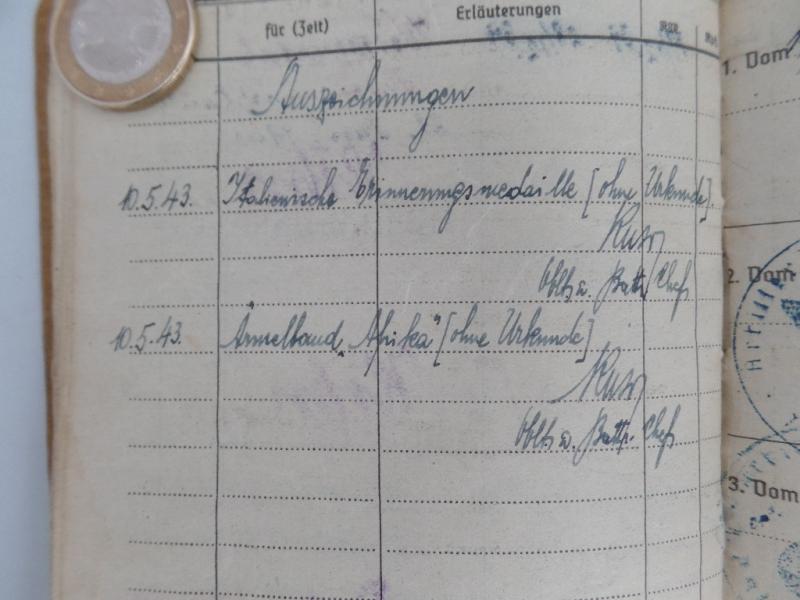 für (Zeit)
Erläuterungen
1. Vom
Auszeichnungen
10.5.43. Italienische Erinnerungsmedaille [ohne Urkunde].
Obltn. u. Battr. Chef
2. Vom
10.5.43. Ärmelband „Afrika" [ohne Urkunde]
Obltn. u. Battr. Chef
3. Vom